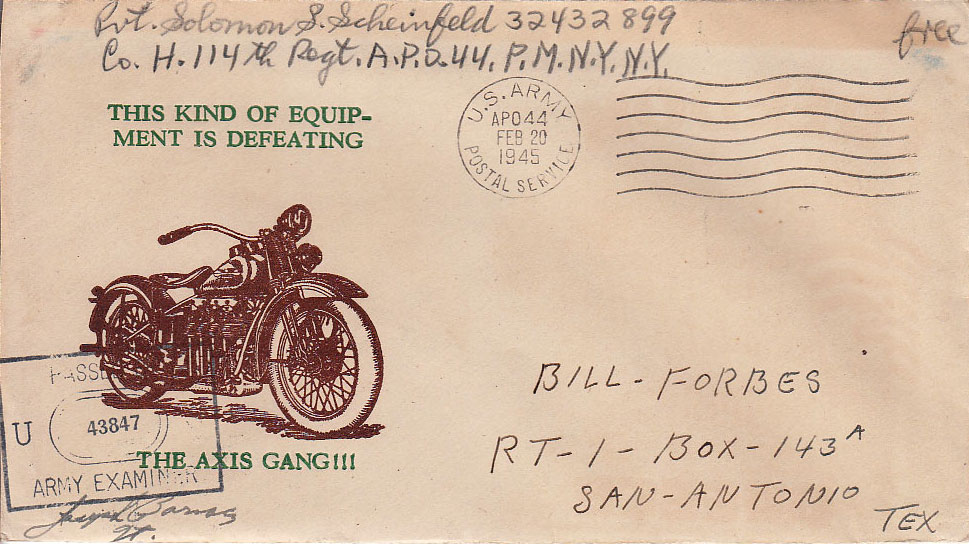 Pvt. Solomon S. Scheinfeld 32432899
Co. H. 114th Regt. A.P.O. 44. P.M. N.Y. N.Y.
free
THIS KIND OF EQUIP-
MENT IS DEFEATING
U.S. ARMY
APO 44
FEB 20
1945
POSTAL SERVICE
PASSED
U
43847
ARMY EXAMINER
THE AXIS GANG!!!
BILL - FORBES
RT - 1 - BOX - 143 A
SAN - ANTONIO
TEX